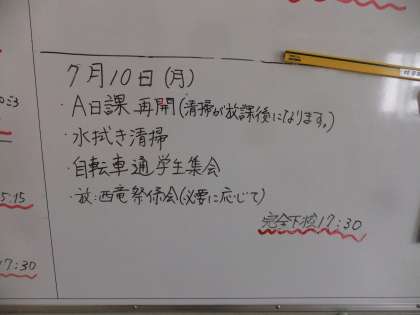 7月10日(月)
・A日課 再開(清掃が放課後になります。)
・水拭き清掃
・自転車通学生集会
・放:西竜祭係会(必要に応じて)
完全下校17:30
5:15
17:30